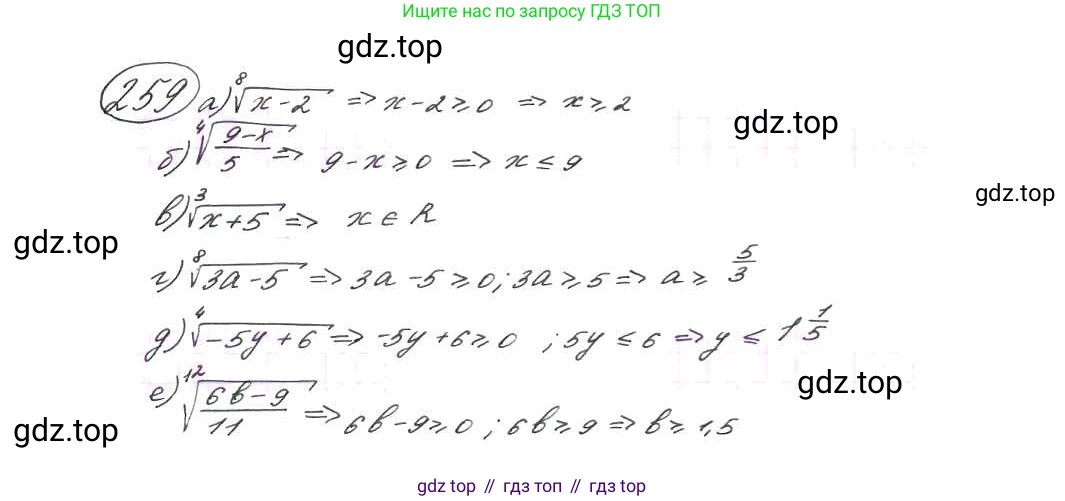 Ищите нас по запросу ГДЗ ТОП
gdz.top
259 а) ⁸√(x-2) => x-2≥0 => x≥2
gdz.top
б) ⁴√((9-x)/5) => 9-x≥0 => x≤9
gdz.top
в) ³√(x+5) => x∈R
gdz.top
г) ⁸√(3a-5) => 3a-5≥0; 3a≥5 => a≥ 5/3
д) ⁴√(-5y+6) => -5y+6≥0 ; 5y≤6 => y≤ 1 1/5
gdz.top
е) ¹²√((6b-9)/11) => 6b-9≥0; 6b≥9 => b≥1,5
gdz.top
gdz.top // гдз топ // gdz.top